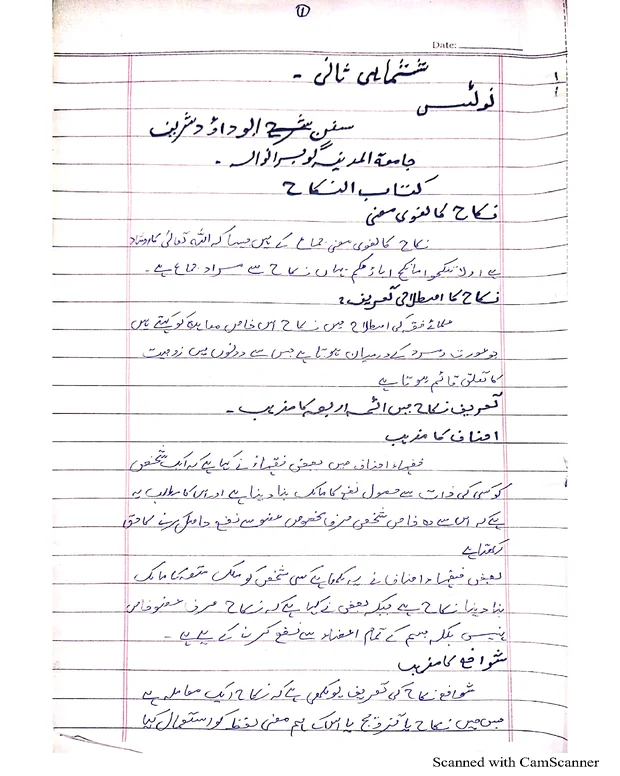 ①
Date:
ششماہی ثانی -
نوٹس
سنن ابوداؤد شریف
جامعۃ المدینہ گوجرانوالہ -
کتاب النکاح
نکاح کا لغوی معنی
نکاح کا لغوی معنی جماع کے ہیں جیسا کہ اللہ تعالیٰ کا ارشاد
ہے ولا تنکحوا ما نکح اباؤکم یہاں نکاح سے مراد جماع ہے -
نکاح کا اصطلاحی تعریف:
علمائے فقہ کی اصطلاح میں نکاح اس خاص معاہدہ کو کہتے ہیں
جو عورت و مرد کے درمیان ہوتا ہے جس سے دونوں میں زوجیت
کا تعلق قائم ہوتا ہے
تعریف نکاح میں ائمہ اربعہ کا مذہب -
احناف کا مذہب
فقہاء احناف میں بعض فقہاء نے کہا ہے کہ ایک شخص
کو کسی کی ذات سے حصول نفع کا مالک بنا دینا ہے اور اس کا مطلب یہ
ہے کہ اس سے وہ خاص شخص صرف مخصوص عضو سے نفع حاصل کرنے کا حق
رکھتا ہے
بعض فقہاء احناف نے یہ لکھا ہے کسی شخص کو ملک متعہ کا مالک
بنا دینا نکاح ہے جبکہ بعض نے کہا ہے کہ نکاح صرف عضو خاص
نہیں بلکہ جسم کے تمام اعضاء سے نفع کرنے کے لیے ہے -
شوافع کا مذہب
شوافع نکاح کی تعریف یوں کی ہے کہ نکاح ایک معاملہ ہے
جس میں نکاح یا تزویج یا اس کے ہم معنی لفظ کو استعمال کیا
Scanned with CamScanner